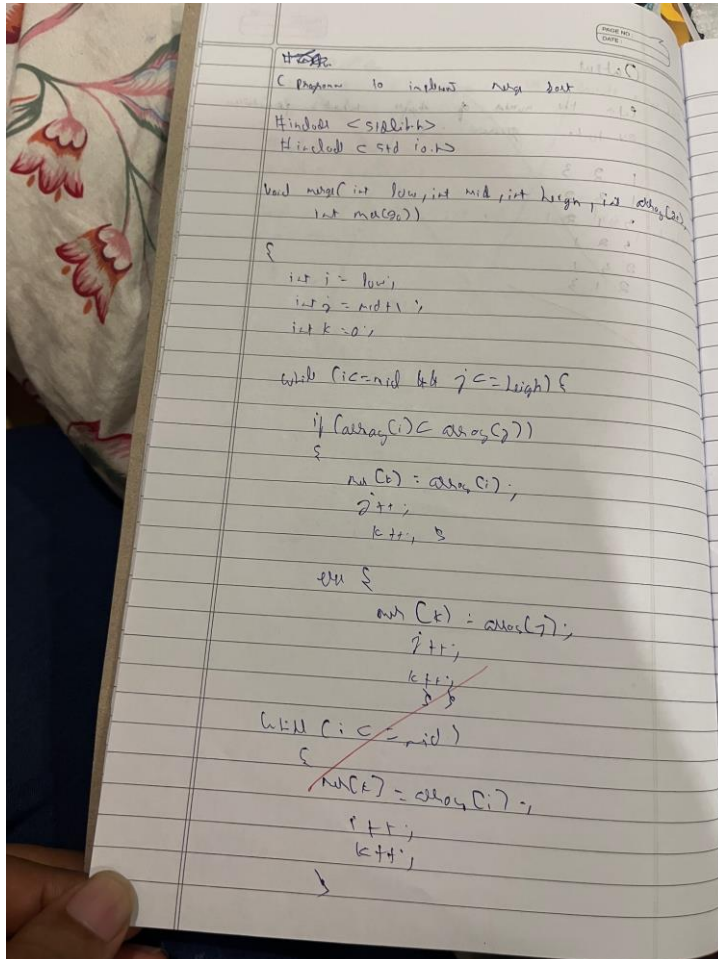 PAGE NO
DATE:
C Program to implement merge sort
#include <stdlib.h>
#include <stdio.h>
void merge(int low, int mid, int heigh, int array[20],
int mer[20])
{
int i = low;
int j = mid+1;
int k = 0;
while (i<=mid && j<=heigh) {
if (array[i] < array[j])
{
mer[k] = array[i];
i++;
k++; }
else {
mer[k] = array[j];
j++;
k++;
} }
while (i <= mid)
{
mer[k] = array[i];
i++;
k++;
}